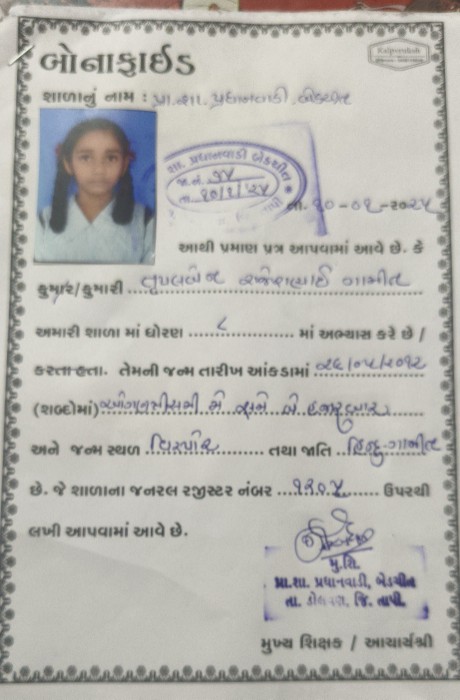 Kalpvruksh
બોનાફાઈડ
શાળાનું નામ : પ્રા.શા. પ્રધાનવાડી, બેડચીત
શા. પ્રધાનવાડી બેડચીત
જા.નં. ૧૪
તા. ૨૦/૧/૨૪
તા. ૨૦-૦૧-૨૦૨૪
આથી પ્રમાણ પત્ર આપવામાં આવે છે. કે
કુમાર/કુમારી ગામીત
અમારી શાળા માં ધોરણ ૮ માં અભ્યાસ કરે છે /
કરતા હતા. તેમની જન્મ તારીખ આંકડામાં ૨૯/૦૫/૨૦૧૨
(શબ્દોમાં) ઓગણત્રીસમી મે બે હજાર બાર
અને જન્મ સ્થળ તથા જાતિ હિન્દુ-ગામીત
છે. જે શાળાના જનરલ રજીસ્ટર નંબર ૧૨૦૪ ઉપરથી
લખી આપવામાં આવે છે.
મુ.શિ.
પ્રા.શા. પ્રધાનવાડી, બેડચીત
તા. ડોલવણ, જિ. તાપી.
મુખ્ય શિક્ષક / આચાર્યશ્રી